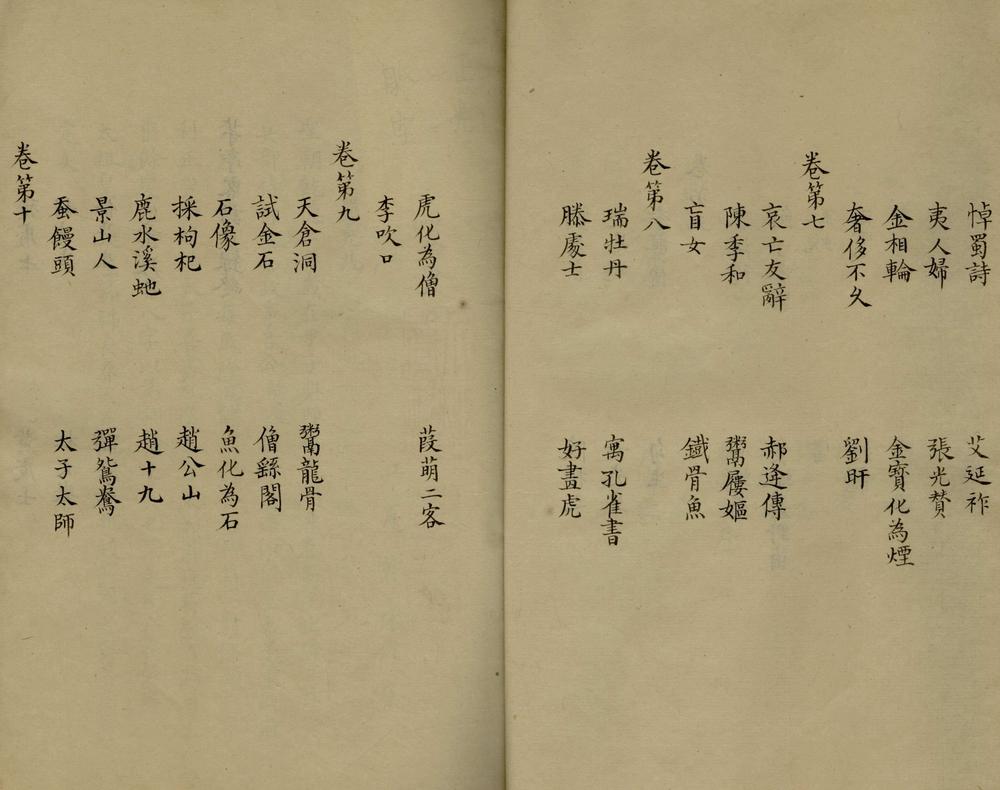 悼蜀詩　艾延祚
夷人婦　張光贊
金相輪　金寶化為煙
奢侈不久　劉旰
卷第七
哀亡友辭　郝逄傳
陳季和　鬻屨嫗
盲女　鐵骨魚
卷第八
瑞牡丹　寓孔雀書
滕處士　好畫虎
虎化為僧　葭萌二客
李吹口
卷第九
天倉洞　鬻龍骨
試金石　僧繇閣
石像　魚化為石
採枸杞　趙公山
鹿水溪虵　趙十九
景山人　彈鴛鴦
蚕饅頭　太子太師
卷第十